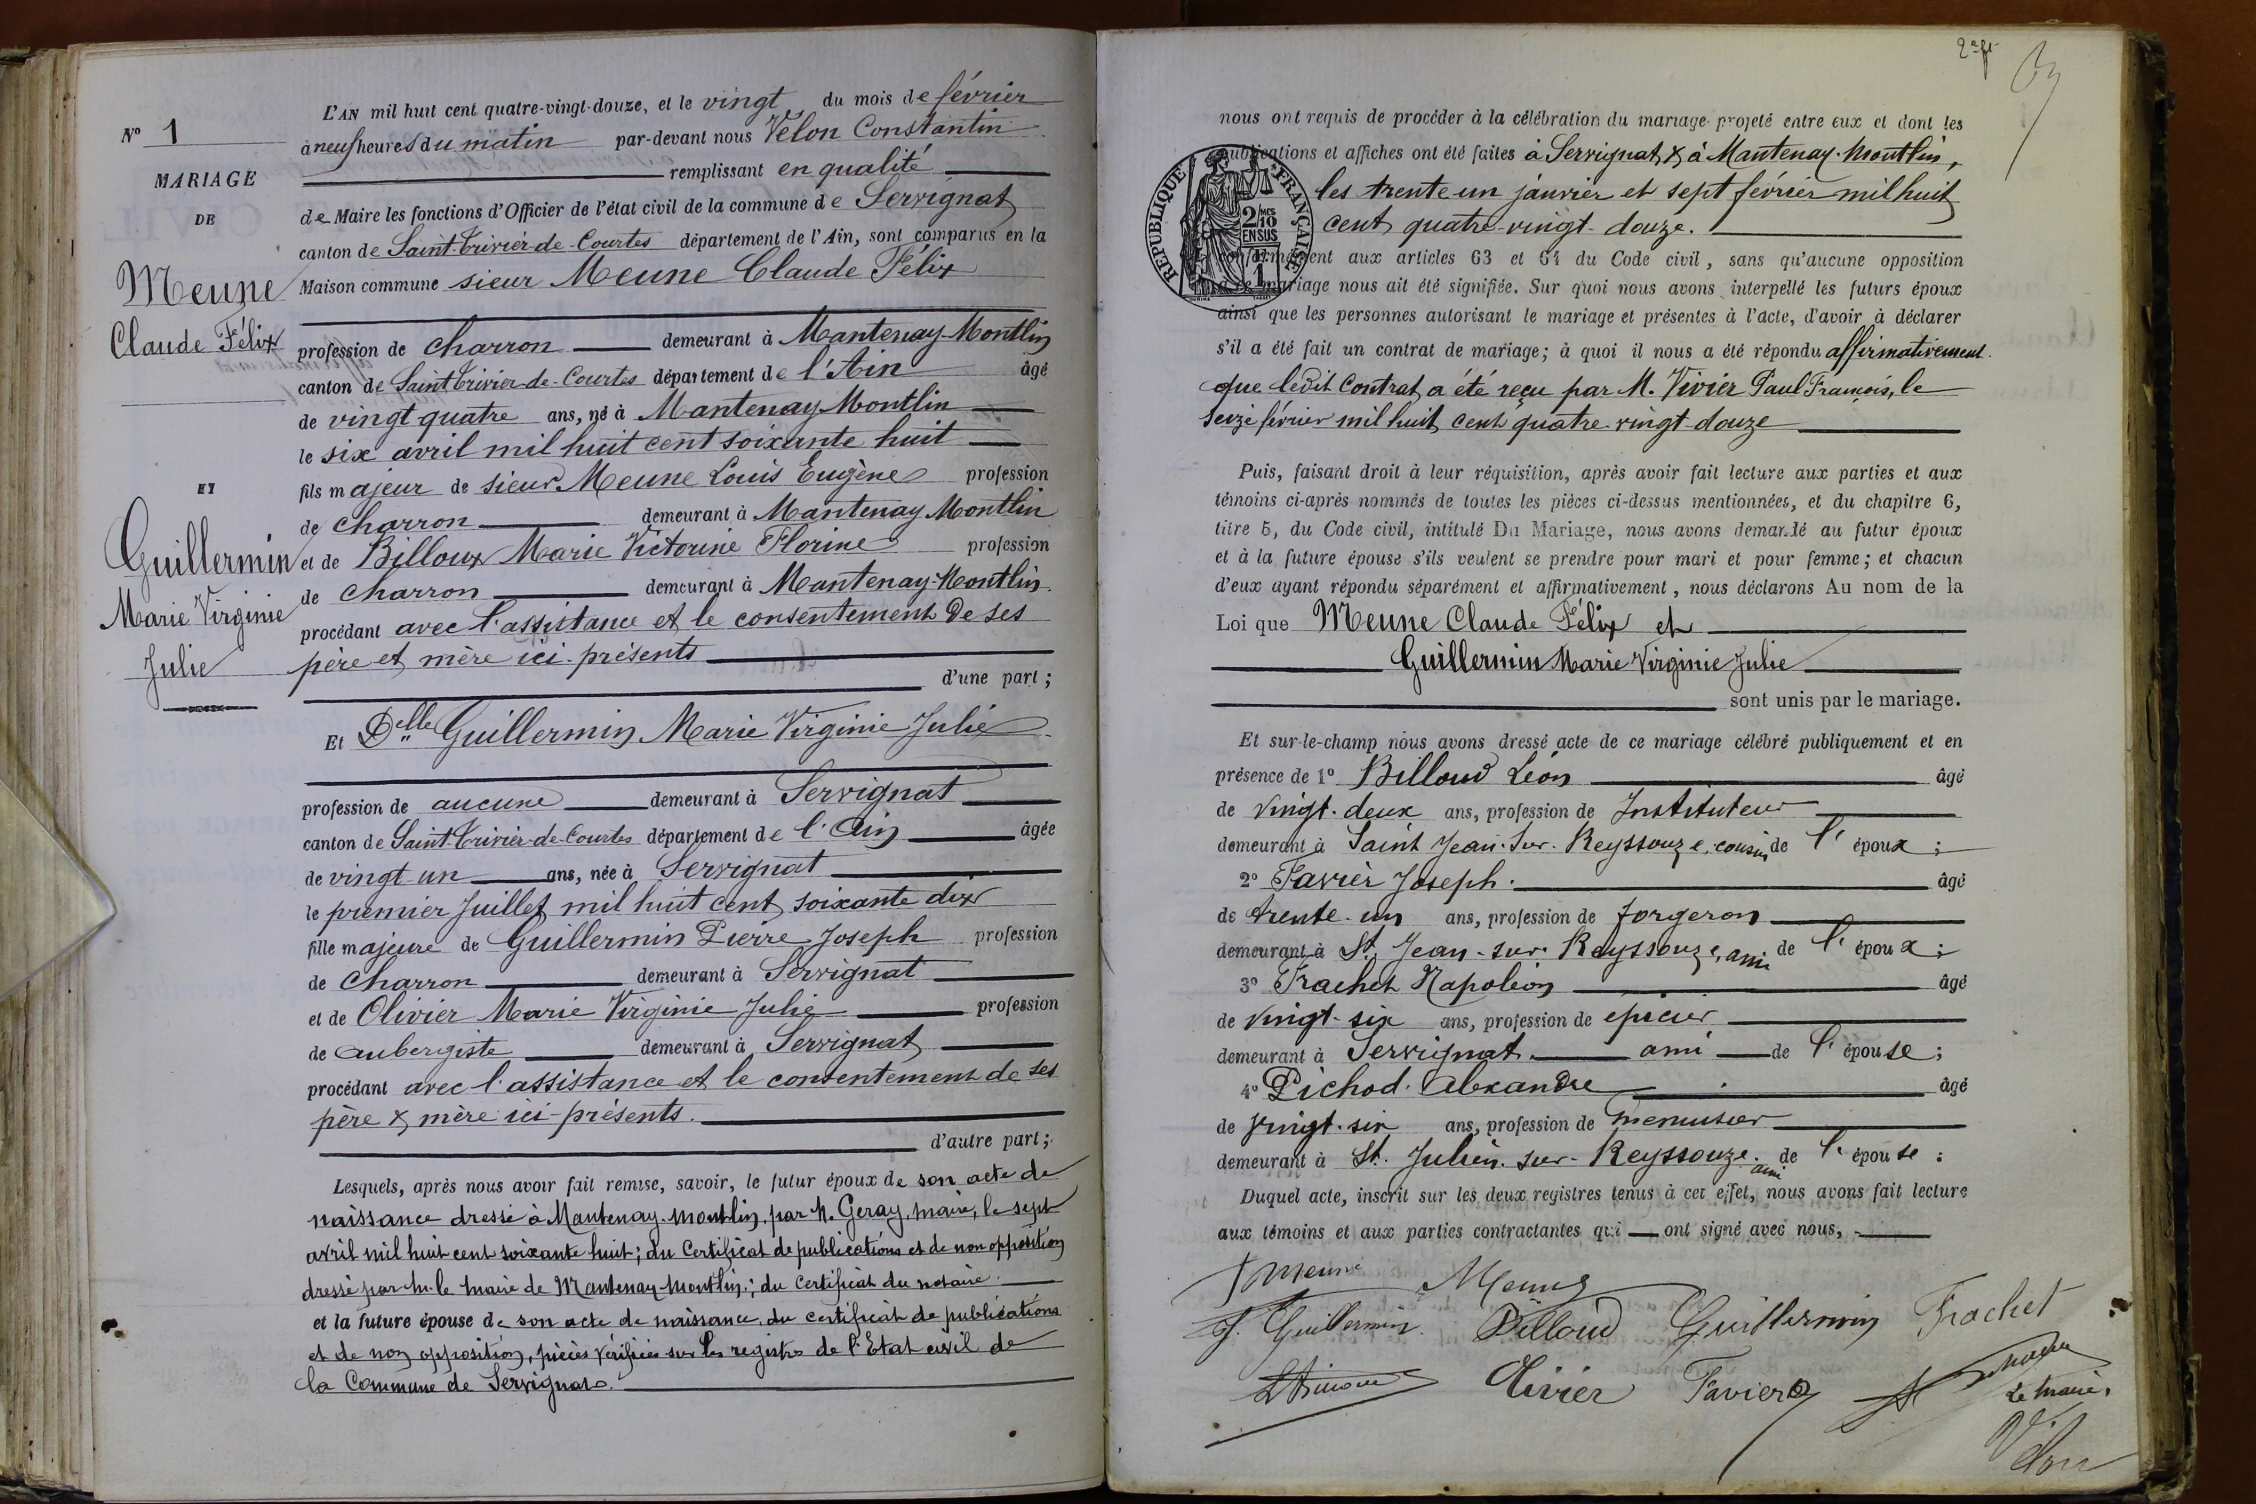 N° 1
MARIAGE
DE
Meune
Claude Félix
ET
Guillermin
Marie Virginie
Julie
L'AN mil huit cent quatre-vingt-douze, et le vingt du mois de février
à neuf heures du matin par-devant nous Vélon Constantin
remplissant en qualité
de Maire les fonctions d'Officier de l'état civil de la commune de Servignat
canton de Saint-Trivier-de-Courtes département de l'Ain, sont comparus en la
Maison commune sieur Meune Claude Félix
profession de charron demeurant à Mantenay-Montlin
canton de Saint-Trivier-de-Courtes département de l'Ain âgé
de vingt quatre ans, né à Mantenay Montlin
le six avril mil huit cent soixante huit
fils majeur de sieur Meune Louis Eugène profession
de charron demeurant à Mantenay Montlin
et de Billoux Marie Victorine Florine profession
de charron demeurant à Mantenay-Montlin
procédant avec l'assistance et le consentement de ses
père et mère ici présents
d'une part ;
Et Delle Guillermin Marie Virginie Julie
profession de aucune demeurant à Servignat
canton de Saint-Trivier-de-Courtes département de l'Ain âgée
de vingt un ans, née à Servignat
le premier Juillet mil huit cent soixante dix
fille majeure de Guillermin Pierre Joseph profession
de charron demeurant à Servignat
et de Olivier Marie Virginie Julie profession
de aubergiste demeurant à Servignat
procédant avec l'assistance et le consentement de ses
père & mère ici-présents.
d'autre part ;
Lesquels, après nous avoir fait remise, savoir, le futur époux de son acte de
naissance dressé à Mantenay-Montlin, par M. Geray, maire, le sept
avril mil huit cent soixante huit ; du Certificat de publications et de non opposition
dressé par M. le Maire de Mantenay-Montlin ; du certificat du notaire.
et la future épouse de son acte de naissance, du certificat de publications
et de non opposition, pièces vérifiées sur les registres de l'Etat civil de
la Commune de Servignat.
nous ont requis de procéder à la célébration du mariage projeté entre eux et dont les
publications et affiches ont été faites à Servignat & à Mantenay-Montlin,
les trente un janvier et sept février mil huit
cent quatre-vingt-douze.
RÉPUBLIQUE FRANÇAISE
2/10 MES
EN SUS
conformément aux articles 63 et 64 du Code civil, sans qu'aucune opposition
à ce mariage nous ait été signifiée. Sur quoi nous avons interpellé les futurs époux
ainsi que les personnes autorisant le mariage et présentes à l'acte, d'avoir à déclarer
s'il a été fait un contrat de mariage ; à quoi il nous a été répondu affirmativement.
que ledit Contrat a été reçu par M. Vivier Paul François, le
seize février mil huit cent quatre-vingt-douze
Puis, faisant droit à leur réquisition, après avoir fait lecture aux parties et aux
témoins ci-après nommés de toutes les pièces ci-dessus mentionnées, et du chapitre 6,
titre 5, du Code civil, intitulé Du Mariage, nous avons demandé au futur époux
et à la future épouse s'ils veulent se prendre pour mari et pour femme ; et chacun
d'eux ayant répondu séparément et affirmativement, nous déclarons Au nom de la
Loi que Meune Claude Félix et
Guillermin Marie Virginie Julie
sont unis par le mariage.
Et sur-le-champ nous avons dressé acte de ce mariage célébré publiquement et en
présence de 1° Billoud Léon âgé
de vingt-deux ans, profession de Instituteur
demeurant à Saint Jean-sur-Reyssouze, cousin de l'époux ;
2° Favier Joseph. âgé
de trente-un ans, profession de forgeron
demeurant à St Jean-sur-Reyssouze, ami de l'époux ;
3° Frachet Napoléon âgé
de vingt-six ans, profession de épicier
demeurant à Servignat. ami de l'épouse ;
4° Pichod Alexandre âgé
de vingt-six ans, profession de menuisier
demeurant à St. Julien-sur-Reyssouze. ami de l'épouse ;
Duquel acte, inscrit sur les deux registres tenus à cet effet, nous avons fait lecture
aux témoins et aux parties contractantes qui ont signé avec nous,
Meune Meune
J. Guillermin. Billoud Guillermin Frachet
Olivier Favier
Le Maire.
Vélon